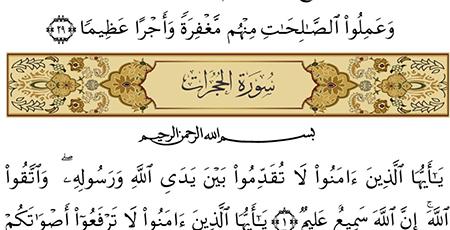 وَعَمِلُوا۟ ٱلصَّـٰلِحَـٰتِ مِنْهُم مَّغْفِرَةً وَأَجْرًا عَظِيمًۢا ﴿٢٩﴾
سُورَةُ الحُجُرَات
بسم الله الرحمن الرحيم
يَـٰٓأَيُّهَا ٱلَّذِينَ ءَامَنُوا۟ لَا تُقَدِّمُوا۟ بَيْنَ يَدَىِ ٱللَّهِ وَرَسُولِهِۦ ۖ وَٱتَّقُوا۟
ٱللَّهَ ۚ إِنَّ ٱللَّهَ سَمِيعٌ عَلِيمٌ ﴿١﴾ يَـٰٓأَيُّهَا ٱلَّذِينَ ءَامَنُوا۟ لَا تَرْفَعُوٓا۟ أَصْوَٰتَكُمْ